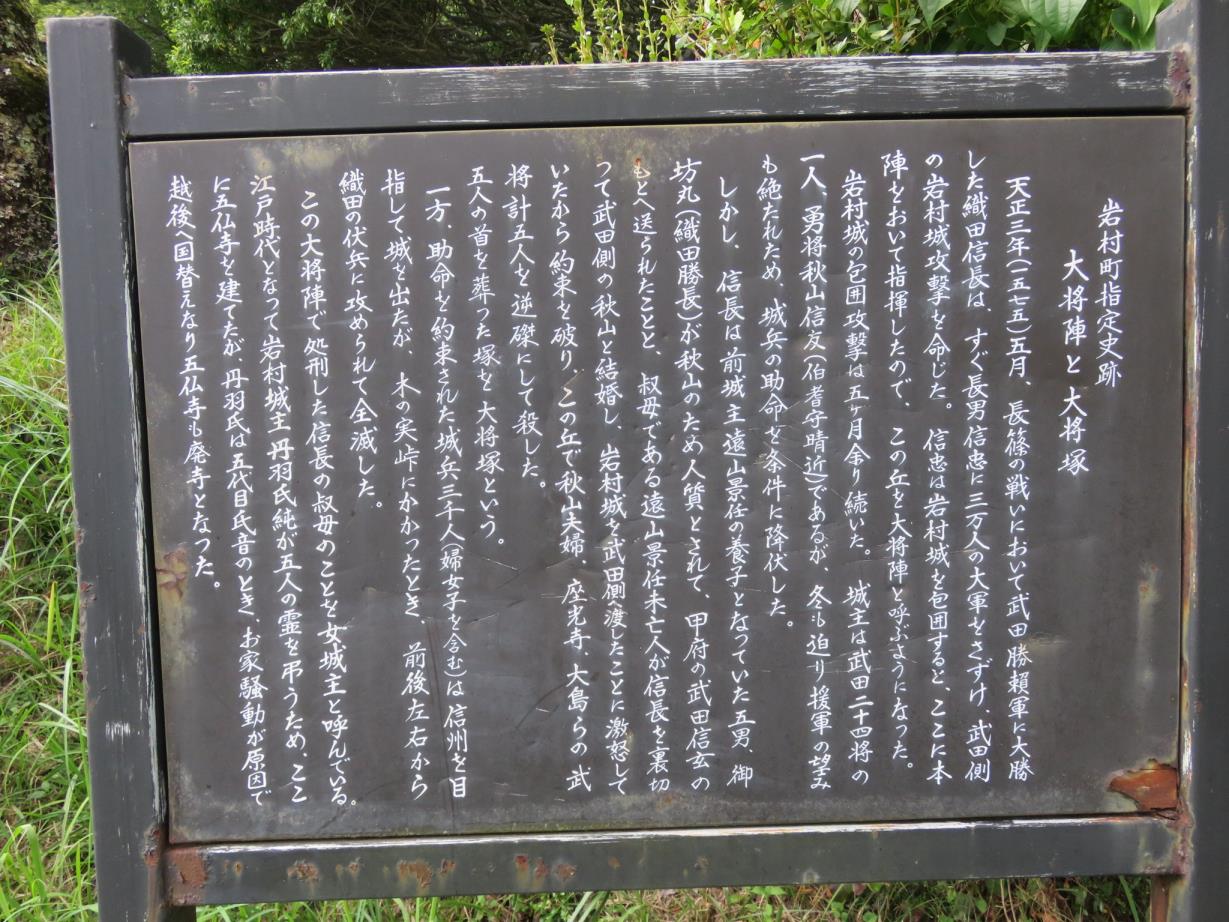 岩村町指定史跡
大将陣と大将塚
天正三年(一五七五)五月、長篠の戦いにおいて武田勝頼軍に大勝
した織田信長は、すぐ長男信忠に三万人の大軍をさずけ、武田側
の岩村城攻撃を命じた。信忠は岩村城を包囲すると、ここに本
陣をおいて指揮したので、この丘を大将陣と呼ぶようになった。
岩村城の包囲攻撃は五ヶ月余り続いた。城主は武田二十四将の
一人、勇将秋山信友(伯耆守晴近)であるが、冬も迫り援軍の望み
も絶たれたため、城兵の助命を条件に降伏した。
しかし、信長は前城主遠山景任の養子となっていた五男、御
坊丸(織田勝長)が秋山のため人質とされて、甲府の武田信玄の
もとへ送られたことと、叔母である遠山景任未亡人が信長を裏切
つて武田側の秋山と結婚し、岩村城を武田側へ渡したことに激怒して
いたから約束を破り、この丘で秋山夫婦、座光寺、大島らの武
将計五人を逆磔にして殺した。
五人の首を葬った塚を大将塚という。
一方、助命を約束された城兵三千人(婦女子を含む)は信州を目
指して城を出たが、木の実峠にかかったとき、前後左右から
織田の伏兵に攻められて全滅した。
この大将陣で処刑した信長の叔母のことを女城主と呼んでいる。
江戸時代となって岩村城主丹羽氏純が五人の霊を弔うため、ここ
に五仏寺を建てたが、丹羽氏は五代目氏音のとき、お家騒動が原因で
越後へ国替えなり五仏寺も廃寺となった。